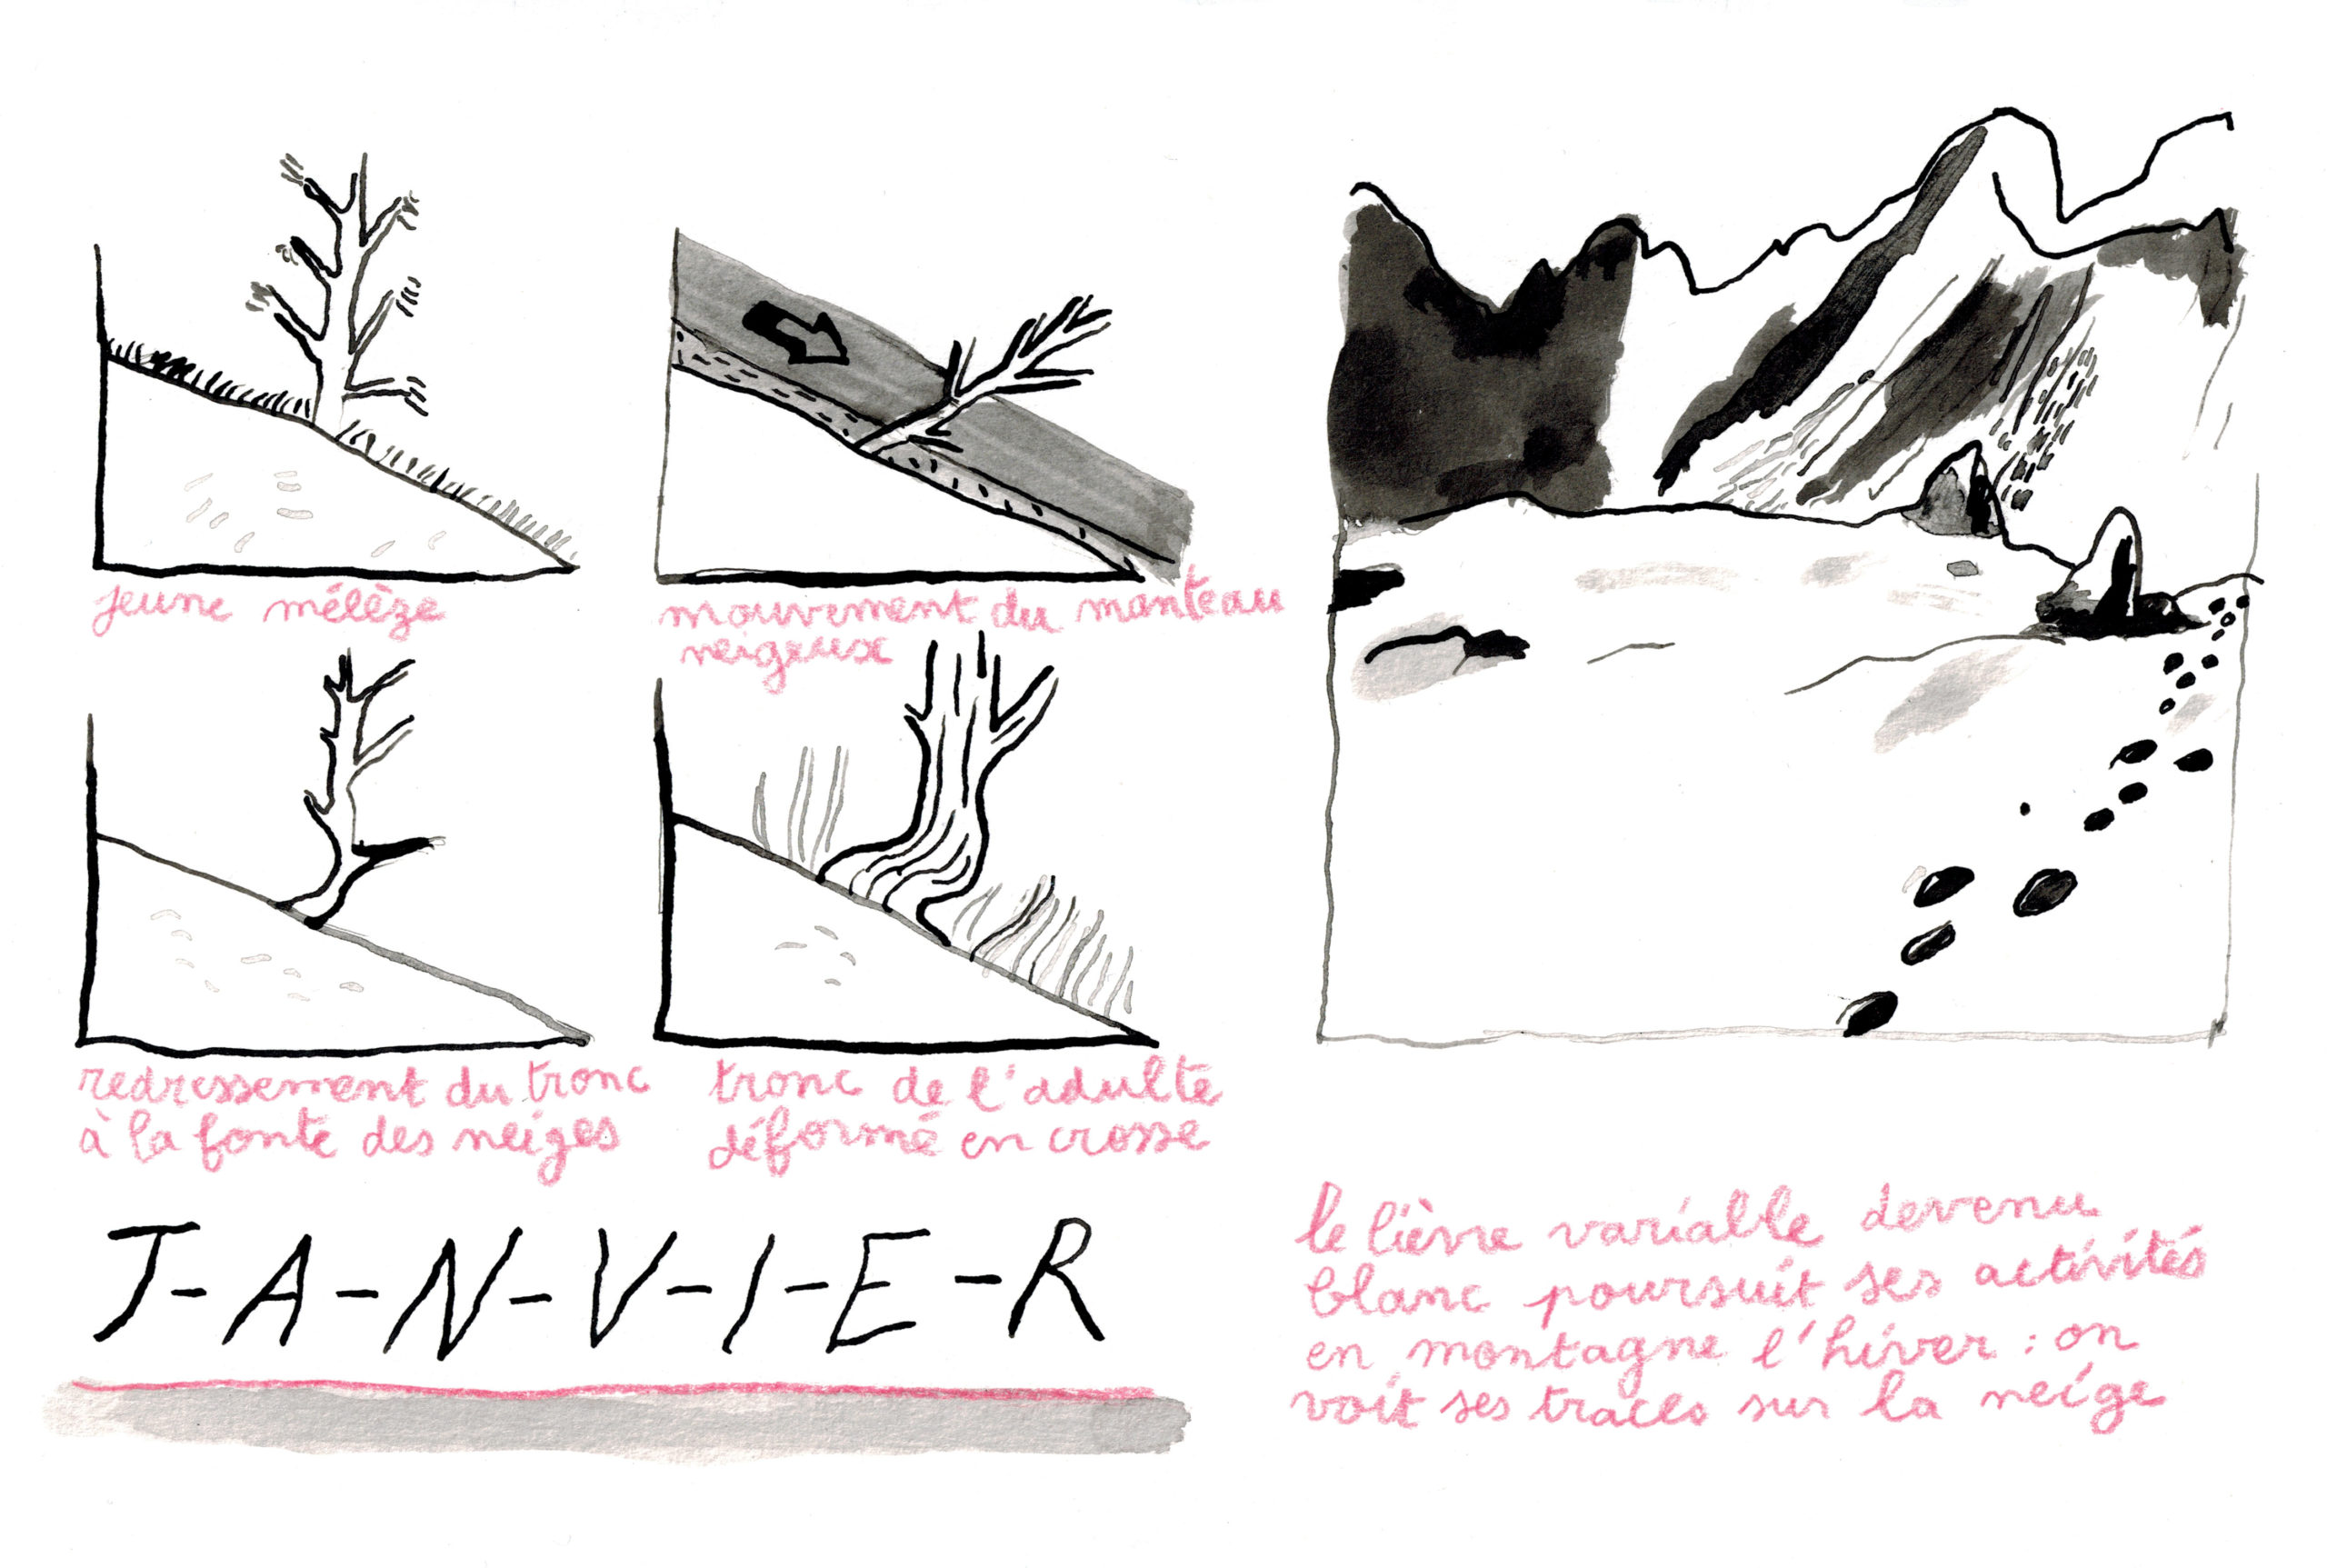 jeune mélèze
mouvement du manteau
neigeux
redressement du tronc
à la fonte des neiges
tronc de l'adulte
déformé en crosse
J-A-N-V-I-E-R
le lièvre variable devenu
blanc poursuit ses activités
en montagne l'hiver : on
voit ses traces sur la neige